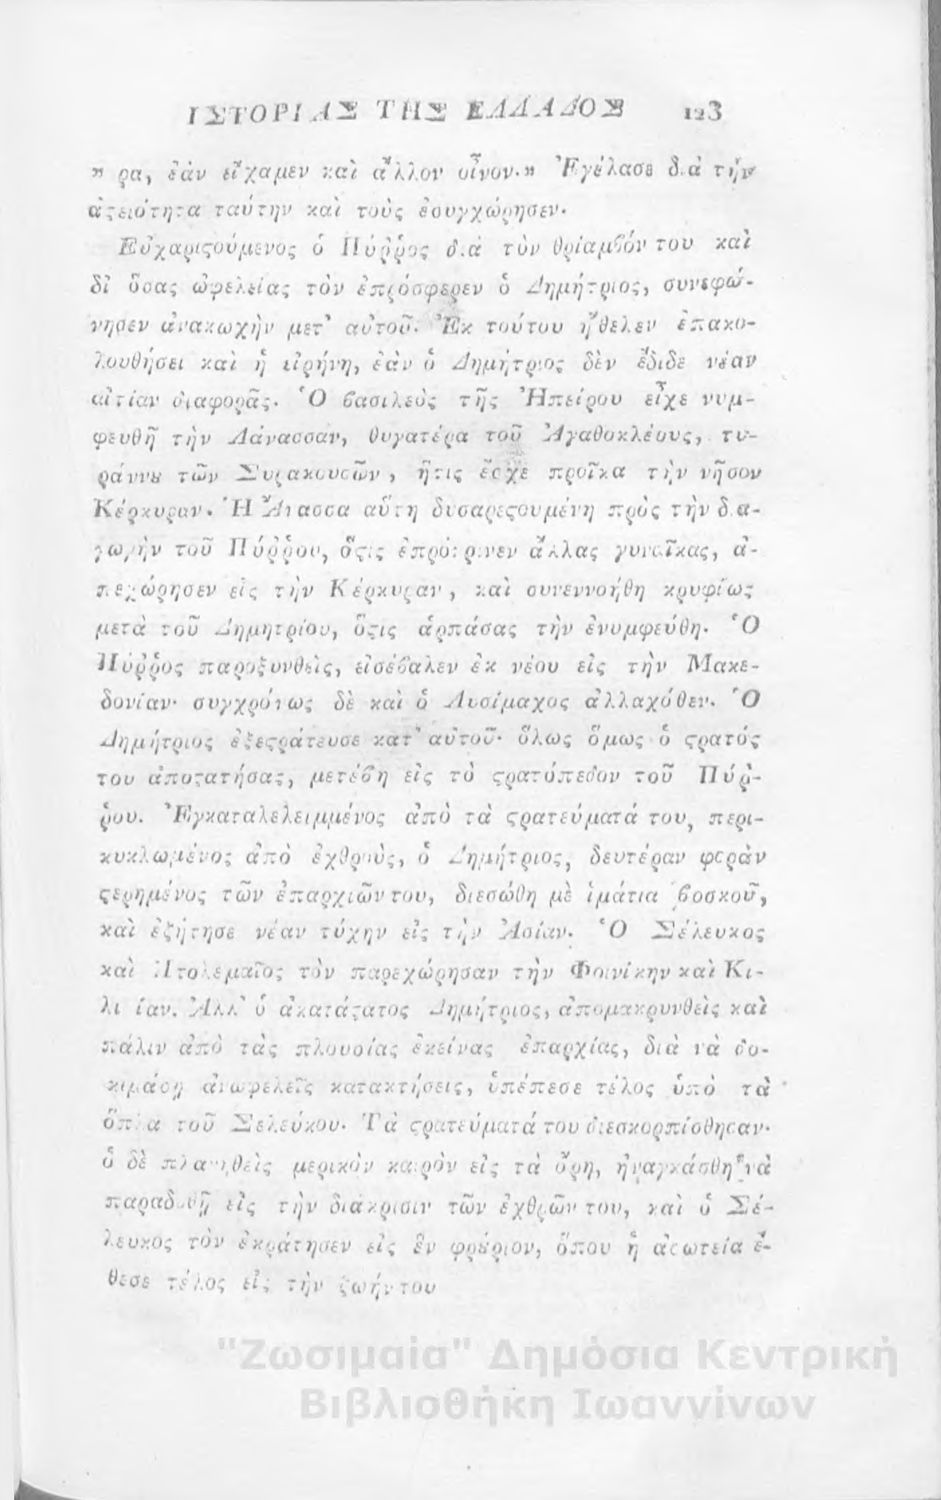 ΙΣΤΟΡΙΑΣ ΤΗΣ ΕΛΛΑΔΟΣ 123
» ρα, ἐάν εἴχαμεν καὶ ἄλλον οἶνον.» Ἐγέλασε διὰ τὴν
ἀςειότητα ταύτην καὶ τοὺς ἐσυγχώρησεν.
Εὐχαριςούμενος ὁ Πύῤῥος διὰ τὸν θρίαμβόν του καὶ
δἰ ὅσας ὠφελείας τὸν ἐπρόσφερεν ὁ Δημήτριος, συνεφώ-
νησεν ἀνακωχὴν μετ' αὐτοῦ. Ἐκ τούτου ἤθελεν ἐπακο-
λουθήσει καὶ ἡ εἰρήνη, ἐάν ὁ Δημήτριος δὲν ἔδιδε νέαν
αἰτίαν διαφορᾶς. Ὁ βασιλεὺς τῆς Ἠπείρου εἶχε νυμ-
φευθῆ τὴν Λάνασσαν, θυγατέρα τοῦ Ἀγαθοκλέους, τυ-
ράννȣ τῶν Συρακουσῶν, ἥτις ἔσχε προῖκα τὴν νῆσον
Κέρκυραν. Ἡ Λάνασσα αὕτη δυσαρεςουμένη πρὸς τὴν δια-
γωγὴν τοῦ Πύῤῥου, ὅςις ἐπρότρινεν ἄλλας γυναῖκας, ἀ-
πεχώρησεν εἰς τὴν Κέρκυραν, καὶ συνεννοήθη κρυφίως
μετὰ τοῦ Δημητρίου, ὅςις ἁρπάσας τὴν ἐνυμφεύθη. Ὁ
Πύῤῥος παροξυνθεὶς, εἰσέβαλεν ἐκ νέου εἰς τὴν Μακε-
δονίαν· συγχρόνως δὲ καὶ ὁ Λυσίμαχος ἀλλαχόθεν. Ὁ
Δημήτριος ἐξεςράτευσε κατ' αὐτοῦ· ὅλως ὅμως ὁ ςρατός
του ἀποςατήσας, μετέβη εἰς τὸ ςρατόπεδον τοῦ Πύῤ-
ῥου. Ἐγκαταλελειμμένος ἀπὸ τὰ ςρατεύματά του, περι-
κυκλωμένος ἀπὸ ἐχθροὺς, ὁ Δημήτριος, δευτέραν φορὰν
ςερημένος τῶν ἐπαρχιῶν του, διεσώθη μὲ ἱμάτια βοσκοῦ,
καὶ ἐζήτησε νέαν τύχην εἰς τὴν Ἀσίαν. Ὁ Σέλευκος
καὶ Πτολεμαῖος τὸν παρεχώρησαν τὴν Φοινίκην καὶ Κι-
λικίαν. Ἀλλ' ὁ ἀκατάςατος Δημήτριος, ἀπομακρυνθεὶς καὶ
πάλιν ἀπὸ τὰς πλουσίας ἐκείνας ἐπαρχίας, διὰ νὰ δο-
κιμάσῃ ἀνωφελεῖς κατακτήσεις, ὑπέπεσε τέλος ὑπὸ τὰ
ὅπλα τοῦ Σελεύκου. Τὰ ςρατεύματά του διεσκορπίσθησαν·
ὁ δὲ πλανηθεὶς μερικὸν καιρὸν εἰς τὰ ὄρη, ἠναγκάσθη νὰ
παραδοθῇ εἰς τὴν διάκρισιν τῶν ἐχθρῶν του, καὶ ὁ Σέ-
λευκος τὸν ἐκράτησεν εἰς ἓν φρούριον, ὅπου ἡ ἀσωτεία ἔ-
θεσε τέλος εἰς τὴν ζωήν του
"Ζωσιμαία" Δημόσια Κεντρική
Βιβλιοθήκη Ιωαννίνων